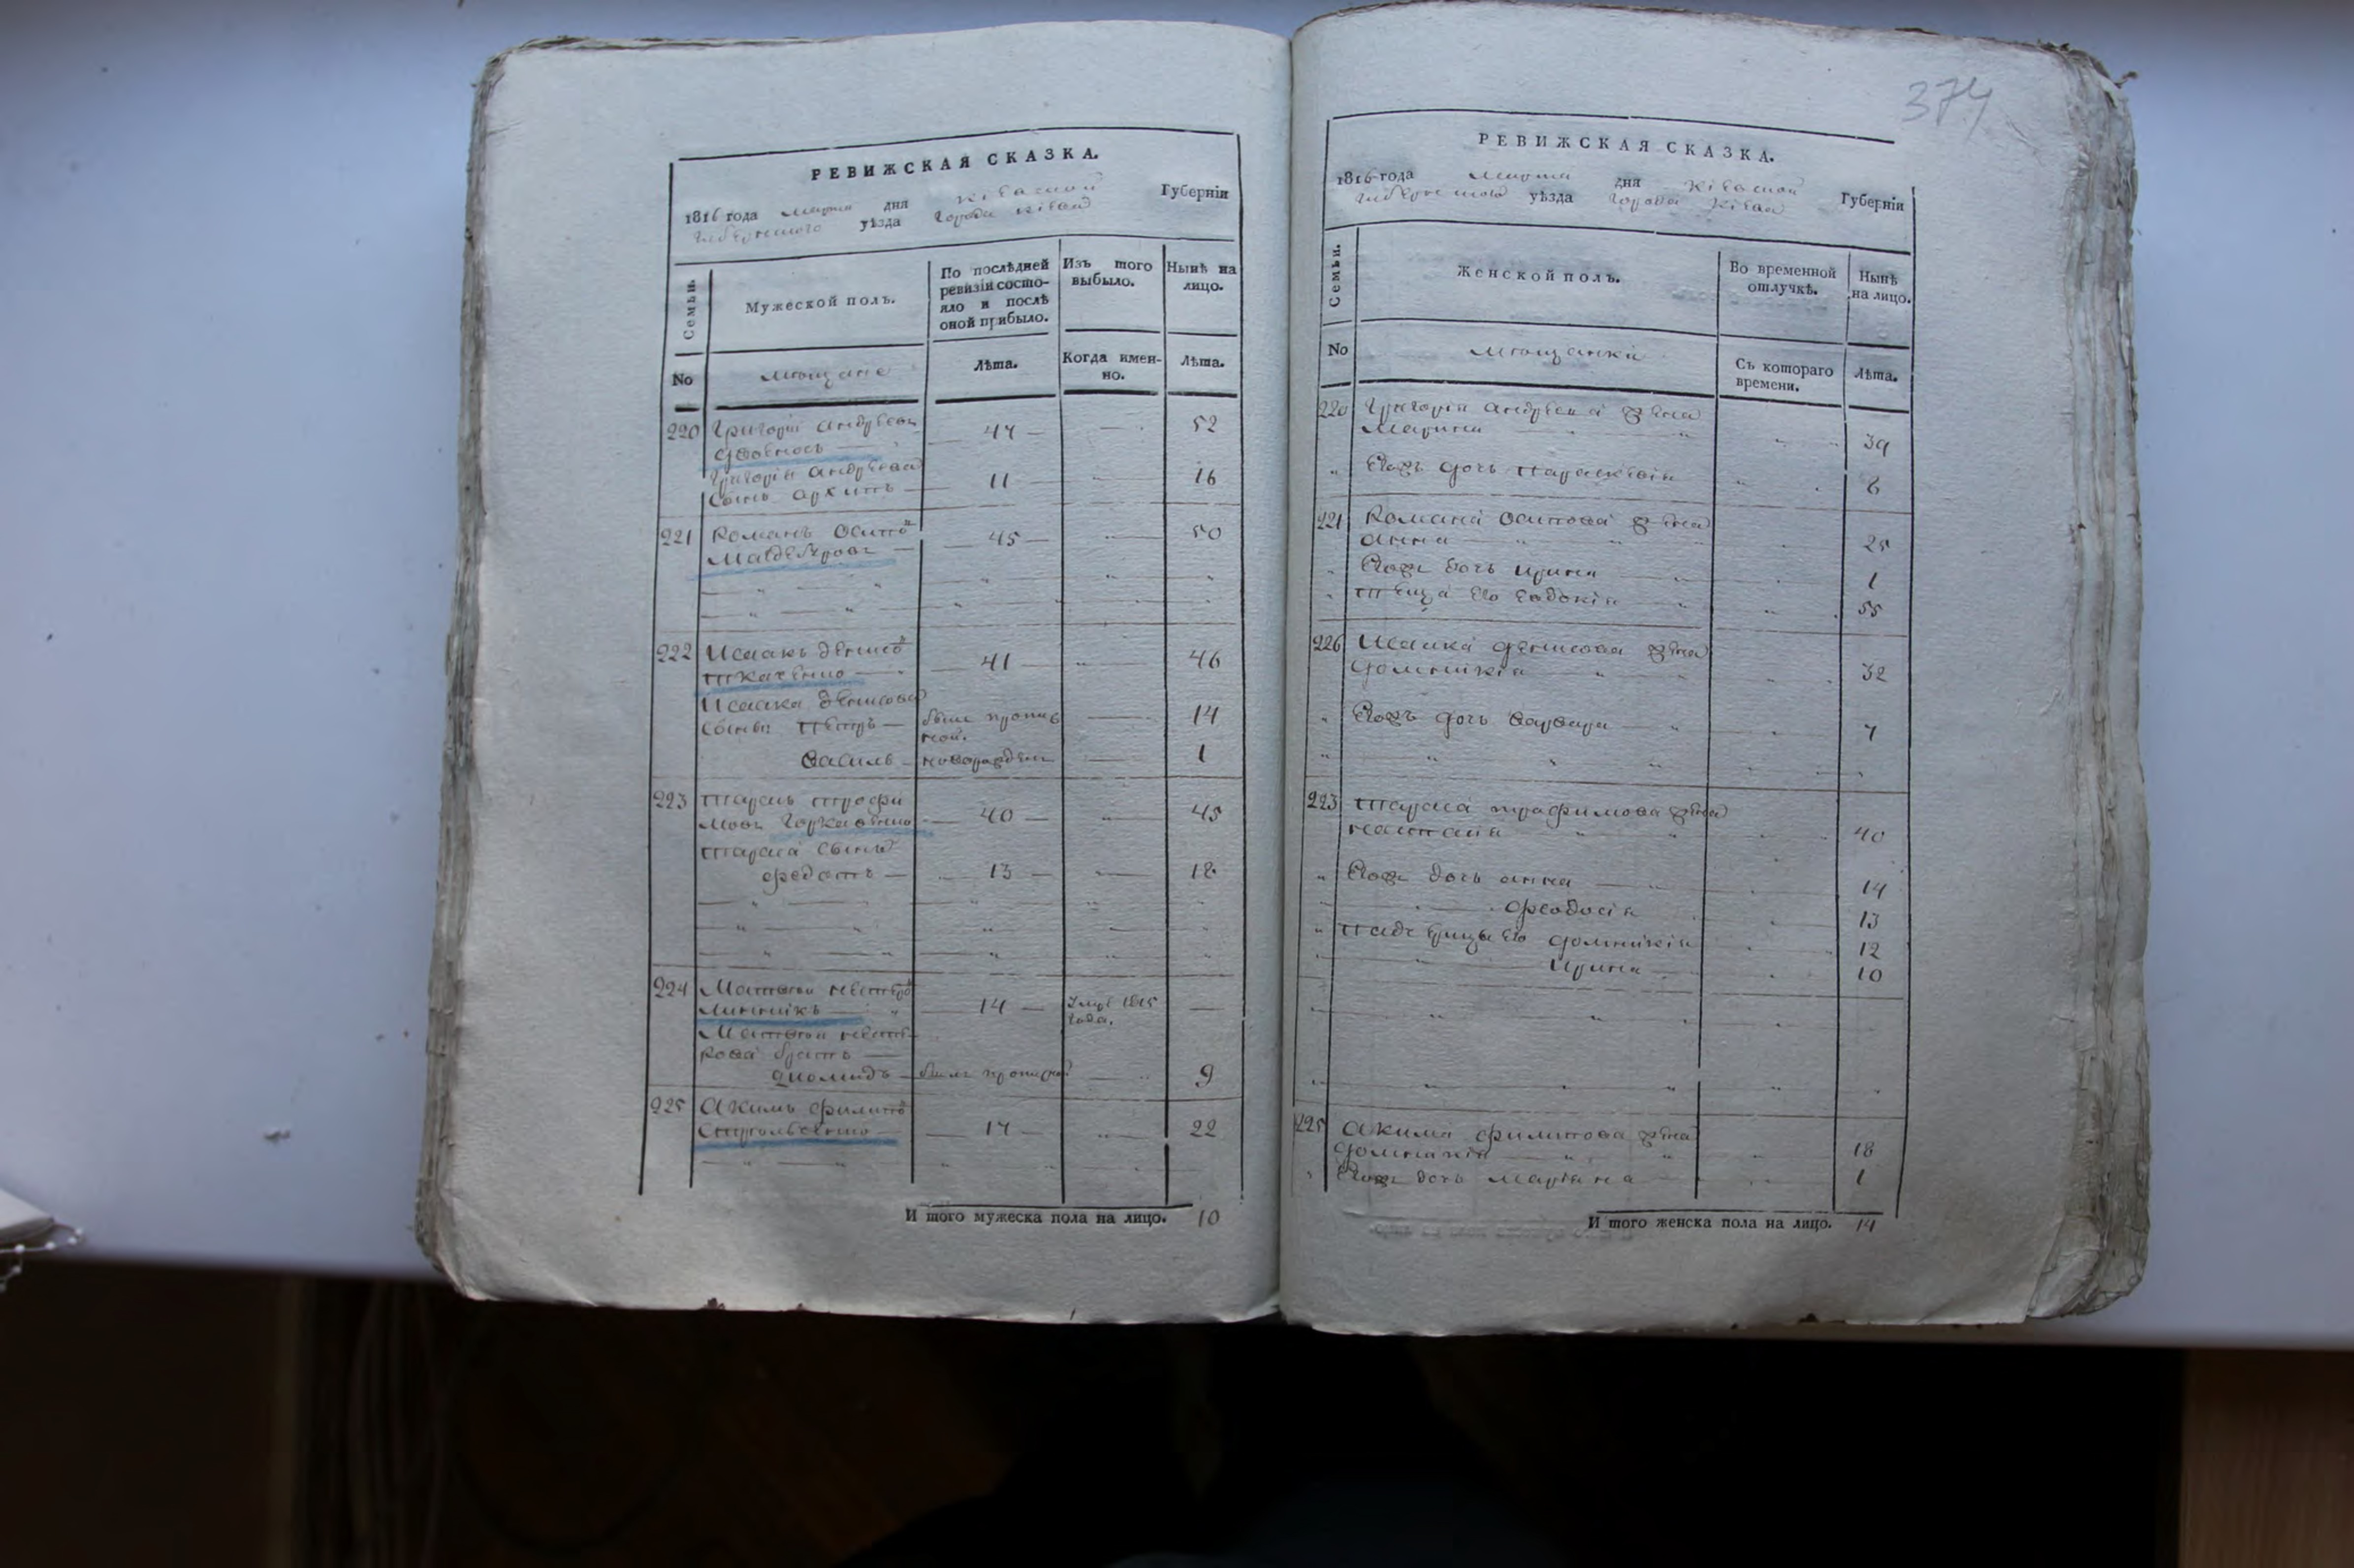 РЕВИЖСКАЯ СКАЗКА.
1816 года марта дня Кіевской Губерніи
уѣзда города Кіева
Семьи.
Мужеской полъ.
По послѣдней ревизіи состояло и послѣ оной прибыло.
Изъ того выбыло.
Нынѣ на лицо.
No
мещане
Лѣта.
Когда именно.
Лѣта.
220 Григорій Андреевъ 47 52
Григорія Андреева
сынъ Архипъ 11 16
221 Романъ Осипо 45 50
222 Исаакъ Денисо
Ткаченко 41 46
Исаака Денисова
сыны Петръ былъ пропис ной. 14
Василь новорожден 1
223 Тарасъ Трофи
мовъ 40 45
Тараса сынъ
Федотъ 13 18
224 Матвей Нестеро
Линникъ 14 Умре 1815 года.
Матвея Несте
рова братъ
Диомидъ былъ прописной 9
225 Акимъ Филипо
17 22
И того мужеска пола на лицо. 10
374
РЕВИЖСКАЯ СКАЗКА.
1816 года марта дня Кіевской Губерніи
уѣзда города Кіева
Семьи.
Женской полъ.
Во временной отлучкѣ.
Нынѣ на лицо.
No
мещанки
Съ котораго времени.
Лѣта.
220 Григорія Андреева жена
Марина 39
Ихъ дочь Параскевія 8
221 Романа Осипова жена
Анна 25
Ихъ дочь Ирина 1
теща его Евдокія 55
226 Исаака Денисова жена
Домникія 32
Ихъ дочь Варвара 7
223 Тараса Трафимова жена
Наталія 40
Ихъ дочь Анна 14
Феодосія 13
падчерицы его Домникія 12
Ирина 10
225 Акима Филипова жена
Домникія 18
Ихъ дочь Маріяна 1
И того женска пола на лицо. 14